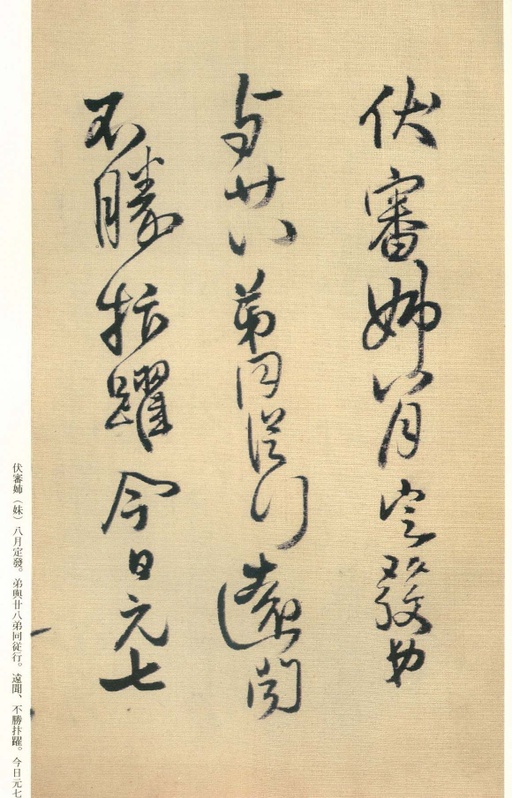 伏審姊八月定發弟
与廿八弟同從行遠聞
不勝抃躍今日元七
伏審姉（妹）八月定發。弟與廿八弟同從行。遠聞、不勝抃躍。今日元七